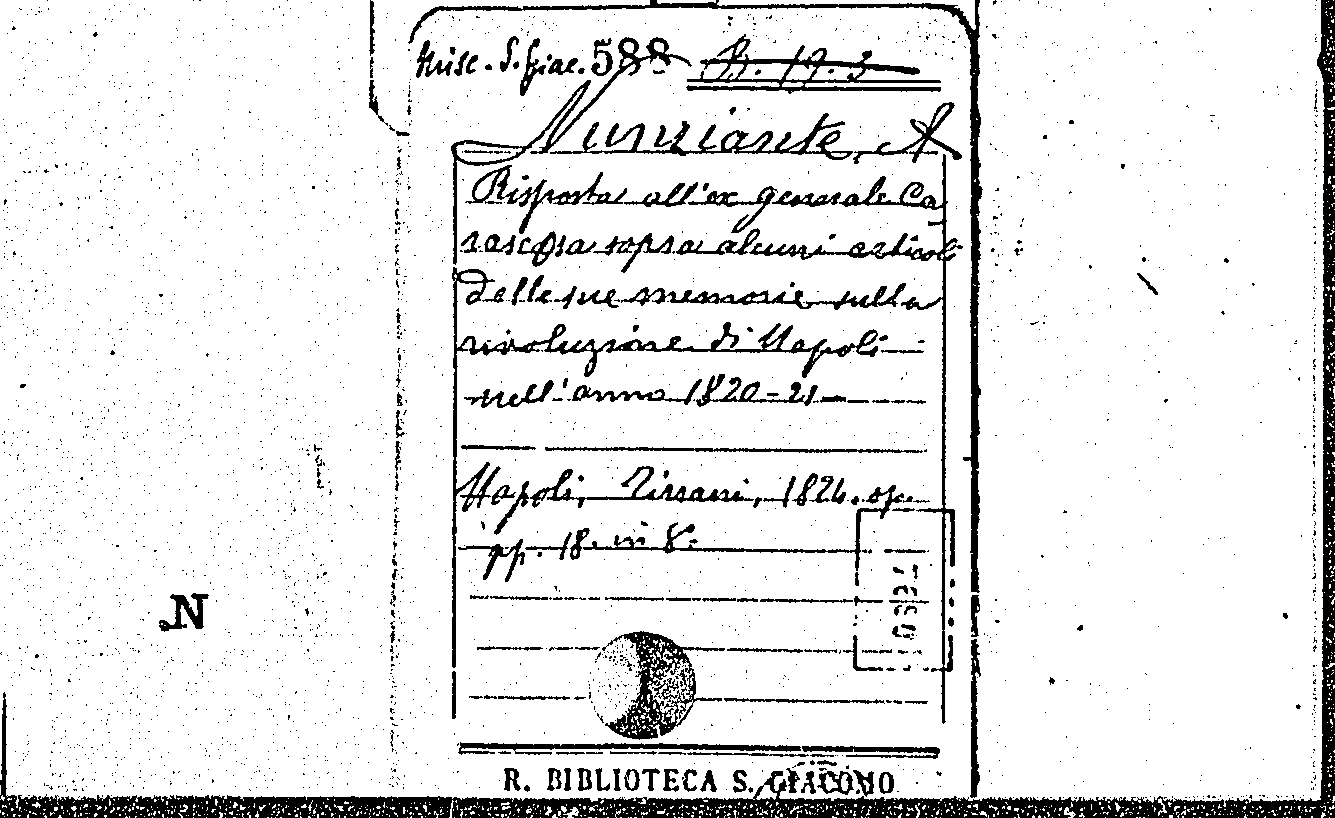 Misc. S. Giac. 588 B. 19. 3
Nunziante, A
Risposta all'ex generale Ca
rascosa sopra alcuni articoli
delle sue memorie sulla
rivoluzione di Napoli
nell'anno 1820-21
Napoli, 1824. op.
pp. 18. in 8.
R. BIBLIOTECA S. GIACOMO
N.